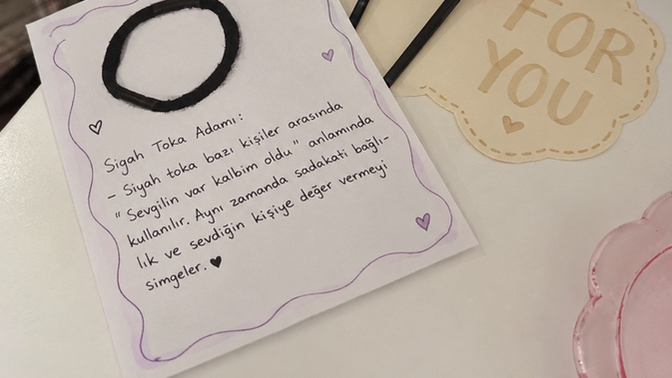 Sigah Toka Adamı:
- Siyah toka bazı kişiler arasında
“Sevgilin var kalbim oldu” anlamında
kullanılır. Aynı zamanda sadakati bağlı-
lık ve sevdiğin kişiye değer vermeyi
simgeler. 🖤
FOR
YOU